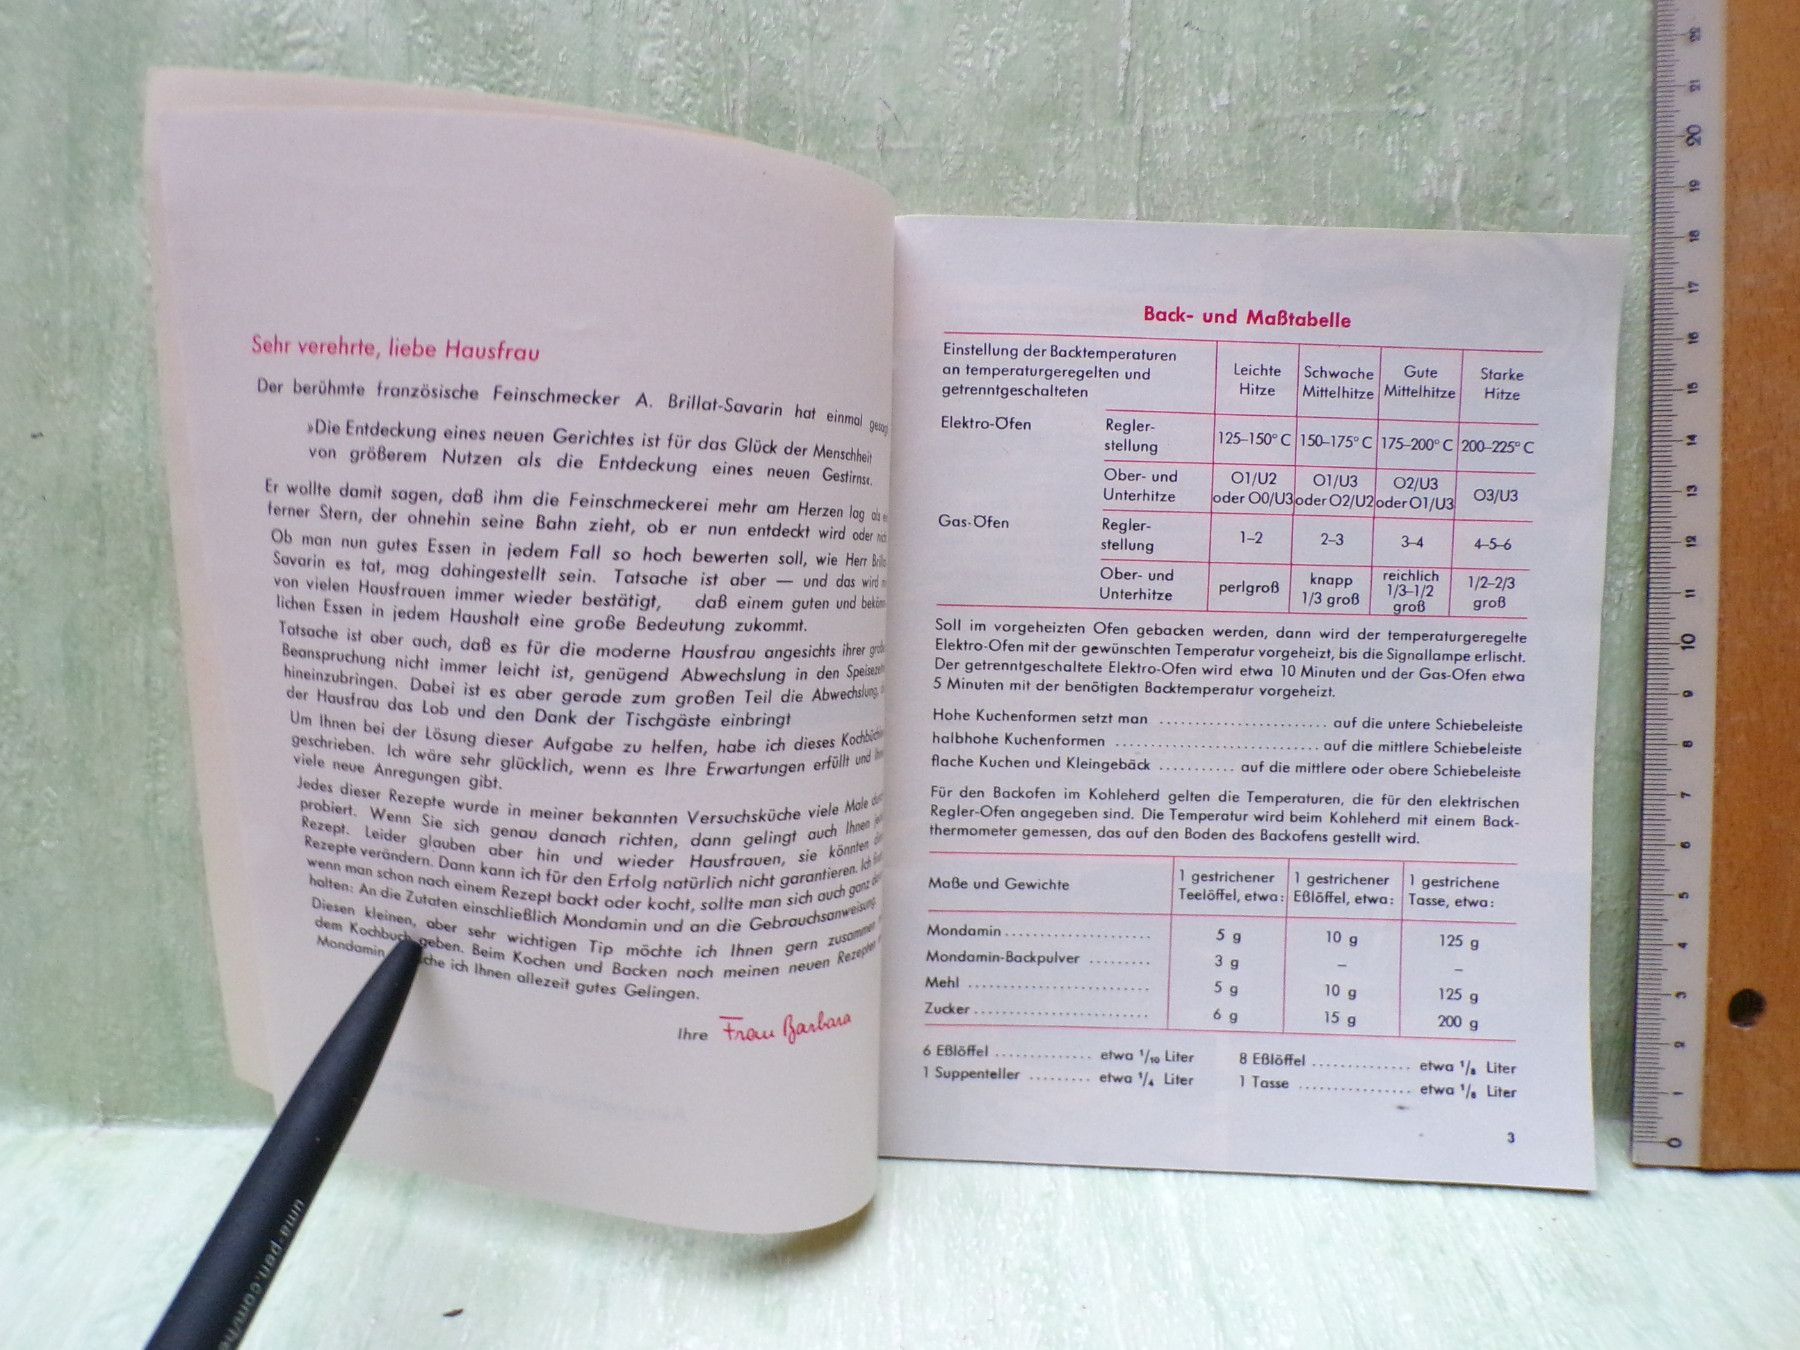 Sehr verehrte, liebe Hausfrau
Der berühmte französische Feinschmecker A. Brillat-Savarin hat einmal
»Die Entdeckung eines neuen Gerichtes ist für das Glück der Menschheit
von größerem Nutzen als die Entdeckung eines neuen Gestirns«.
Er wollte damit sagen, daß ihm die Feinschmeckerei mehr am Herzen lag als
ferner Stern, der ohnehin seine Bahn zieht, ob er nun entdeckt wird oder
Ob man nun gutes Essen in jedem Fall so hoch bewerten soll, wie Herr
Savarin es tat, mag dahingestellt sein. Tatsache ist aber — und das wird
von vielen Hausfrauen immer wieder bestätigt, daß einem guten und
lichen Essen in jedem Haushalt eine große Bedeutung zukommt.
Tatsache ist aber auch, daß es für die moderne Hausfrau angesichts ihrer
Beanspruchung nicht immer leicht ist, genügend Abwechslung in den
hineinzubringen. Dabei ist es aber gerade zum großen Teil die Abwechslung,
der Hausfrau das Lob und den Dank der Tischgäste einbringt
Um Ihnen bei der Lösung dieser Aufgabe zu helfen, habe ich dieses
geschrieben. Ich wäre sehr glücklich, wenn es Ihre Erwartungen erfüllt und
viele neue Anregungen gibt.
Jedes dieser Rezepte wurde in meiner bekannten Versuchsküche viele Male
probiert. Wenn Sie sich genau danach richten, dann gelingt auch Ihnen
Rezept. Leider glauben aber hin und wieder Hausfrauen, sie könnten
Rezepte verändern. Dann kann ich für den Erfolg natürlich nicht garantieren. Ich
wenn man schon nach einem Rezept backt oder kocht, sollte man sich auch ganz
halten: An die Zutaten einschließlich Mondamin und an die Gebrauchsanweisung.
Diesen kleinen, aber sehr wichtigen Tip möchte ich Ihnen gern zusammen
dem Kochbuch geben. Beim Kochen und Backen nach meinen neuen Rezepten
Mondamin ich Ihnen allezeit gutes Gelingen.
Ihre Frau Barbara
Back- und Maßtabelle
Einstellung der Backtemperaturen
an temperaturgeregelten und
getrenntgeschalteten
Leichte Hitze
Schwache Mittelhitze
Gute Mittelhitze
Starke Hitze
Elektro-Öfen
Regler-
stellung
125–150° C 150–175° C 175–200° C 200–225° C
Ober- und
Unterhitze
O1/U2 O1/U3 O2/U3 O3/U3
oder O0/U3 oder O2/U2 oder O1/U3
Gas-Öfen
Regler-
stellung
1–2 2–3 3–4 4–5–6
Ober- und
Unterhitze
perlgroß
knapp
1/3 groß
reichlich
1/3–1/2
groß
1/2–2/3
groß
Soll im vorgeheizten Ofen gebacken werden, dann wird der temperaturgeregelte
Elektro-Ofen mit der gewünschten Temperatur vorgeheizt, bis die Signallampe erlischt.
Der getrenntgeschaltete Elektro-Ofen wird etwa 10 Minuten und der Gas-Ofen etwa
5 Minuten mit der benötigten Backtemperatur vorgeheizt.
Hohe Kuchenformen setzt man ........................ auf die untere Schiebeleiste
halbhohe Kuchenformen ............................. auf die mittlere Schiebeleiste
flache Kuchen und Kleingebäck ........... auf die mittlere oder obere Schiebeleiste
Für den Backofen im Kohleherd gelten die Temperaturen, die für den elektrischen
Regler-Ofen angegeben sind. Die Temperatur wird beim Kohleherd mit einem Back-
thermometer gemessen, das auf den Boden des Backofens gestellt wird.
Maße und Gewichte
1 gestrichener Teelöffel, etwa:
1 gestrichener Eßlöffel, etwa:
1 gestrichene Tasse, etwa:
Mondamin ..................... 5 g 10 g 125 g
Mondamin-Backpulver ......... 3 g – –
Mehl .......................... 5 g 10 g 125 g
Zucker ......................... 6 g 15 g 200 g
6 Eßlöffel .............. etwa 1/10 Liter
8 Eßlöffel .............. etwa 1/8 Liter
1 Suppenteller ......... etwa 1/4 Liter
1 Tasse ................ etwa 1/8 Liter
3
uma-pen.com
22
21
20
19
18
17
16
15
14
13
12
11
10
9
8
7
6
5
4
3
2
1
0